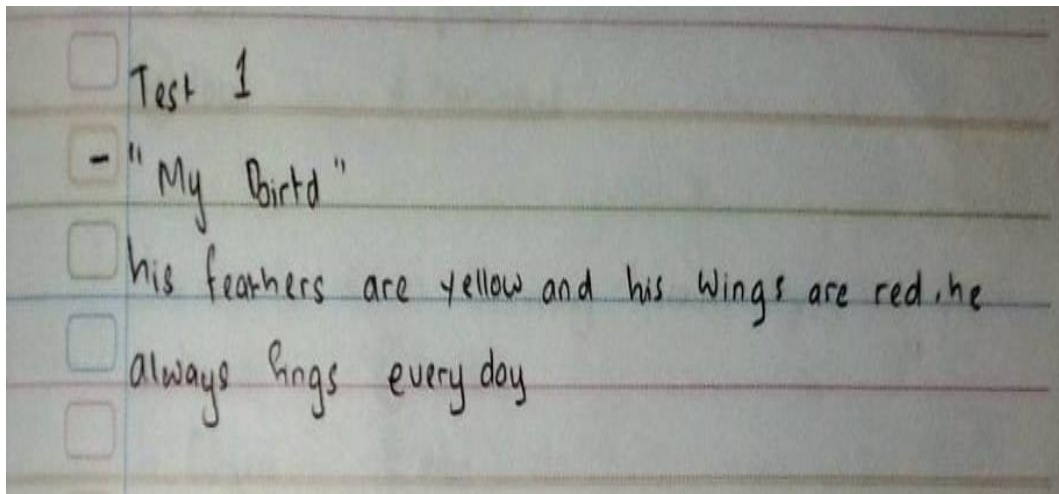 Test 1
- "My Birtd"
his feathers are yellow and his wings are red, he
always sings every day